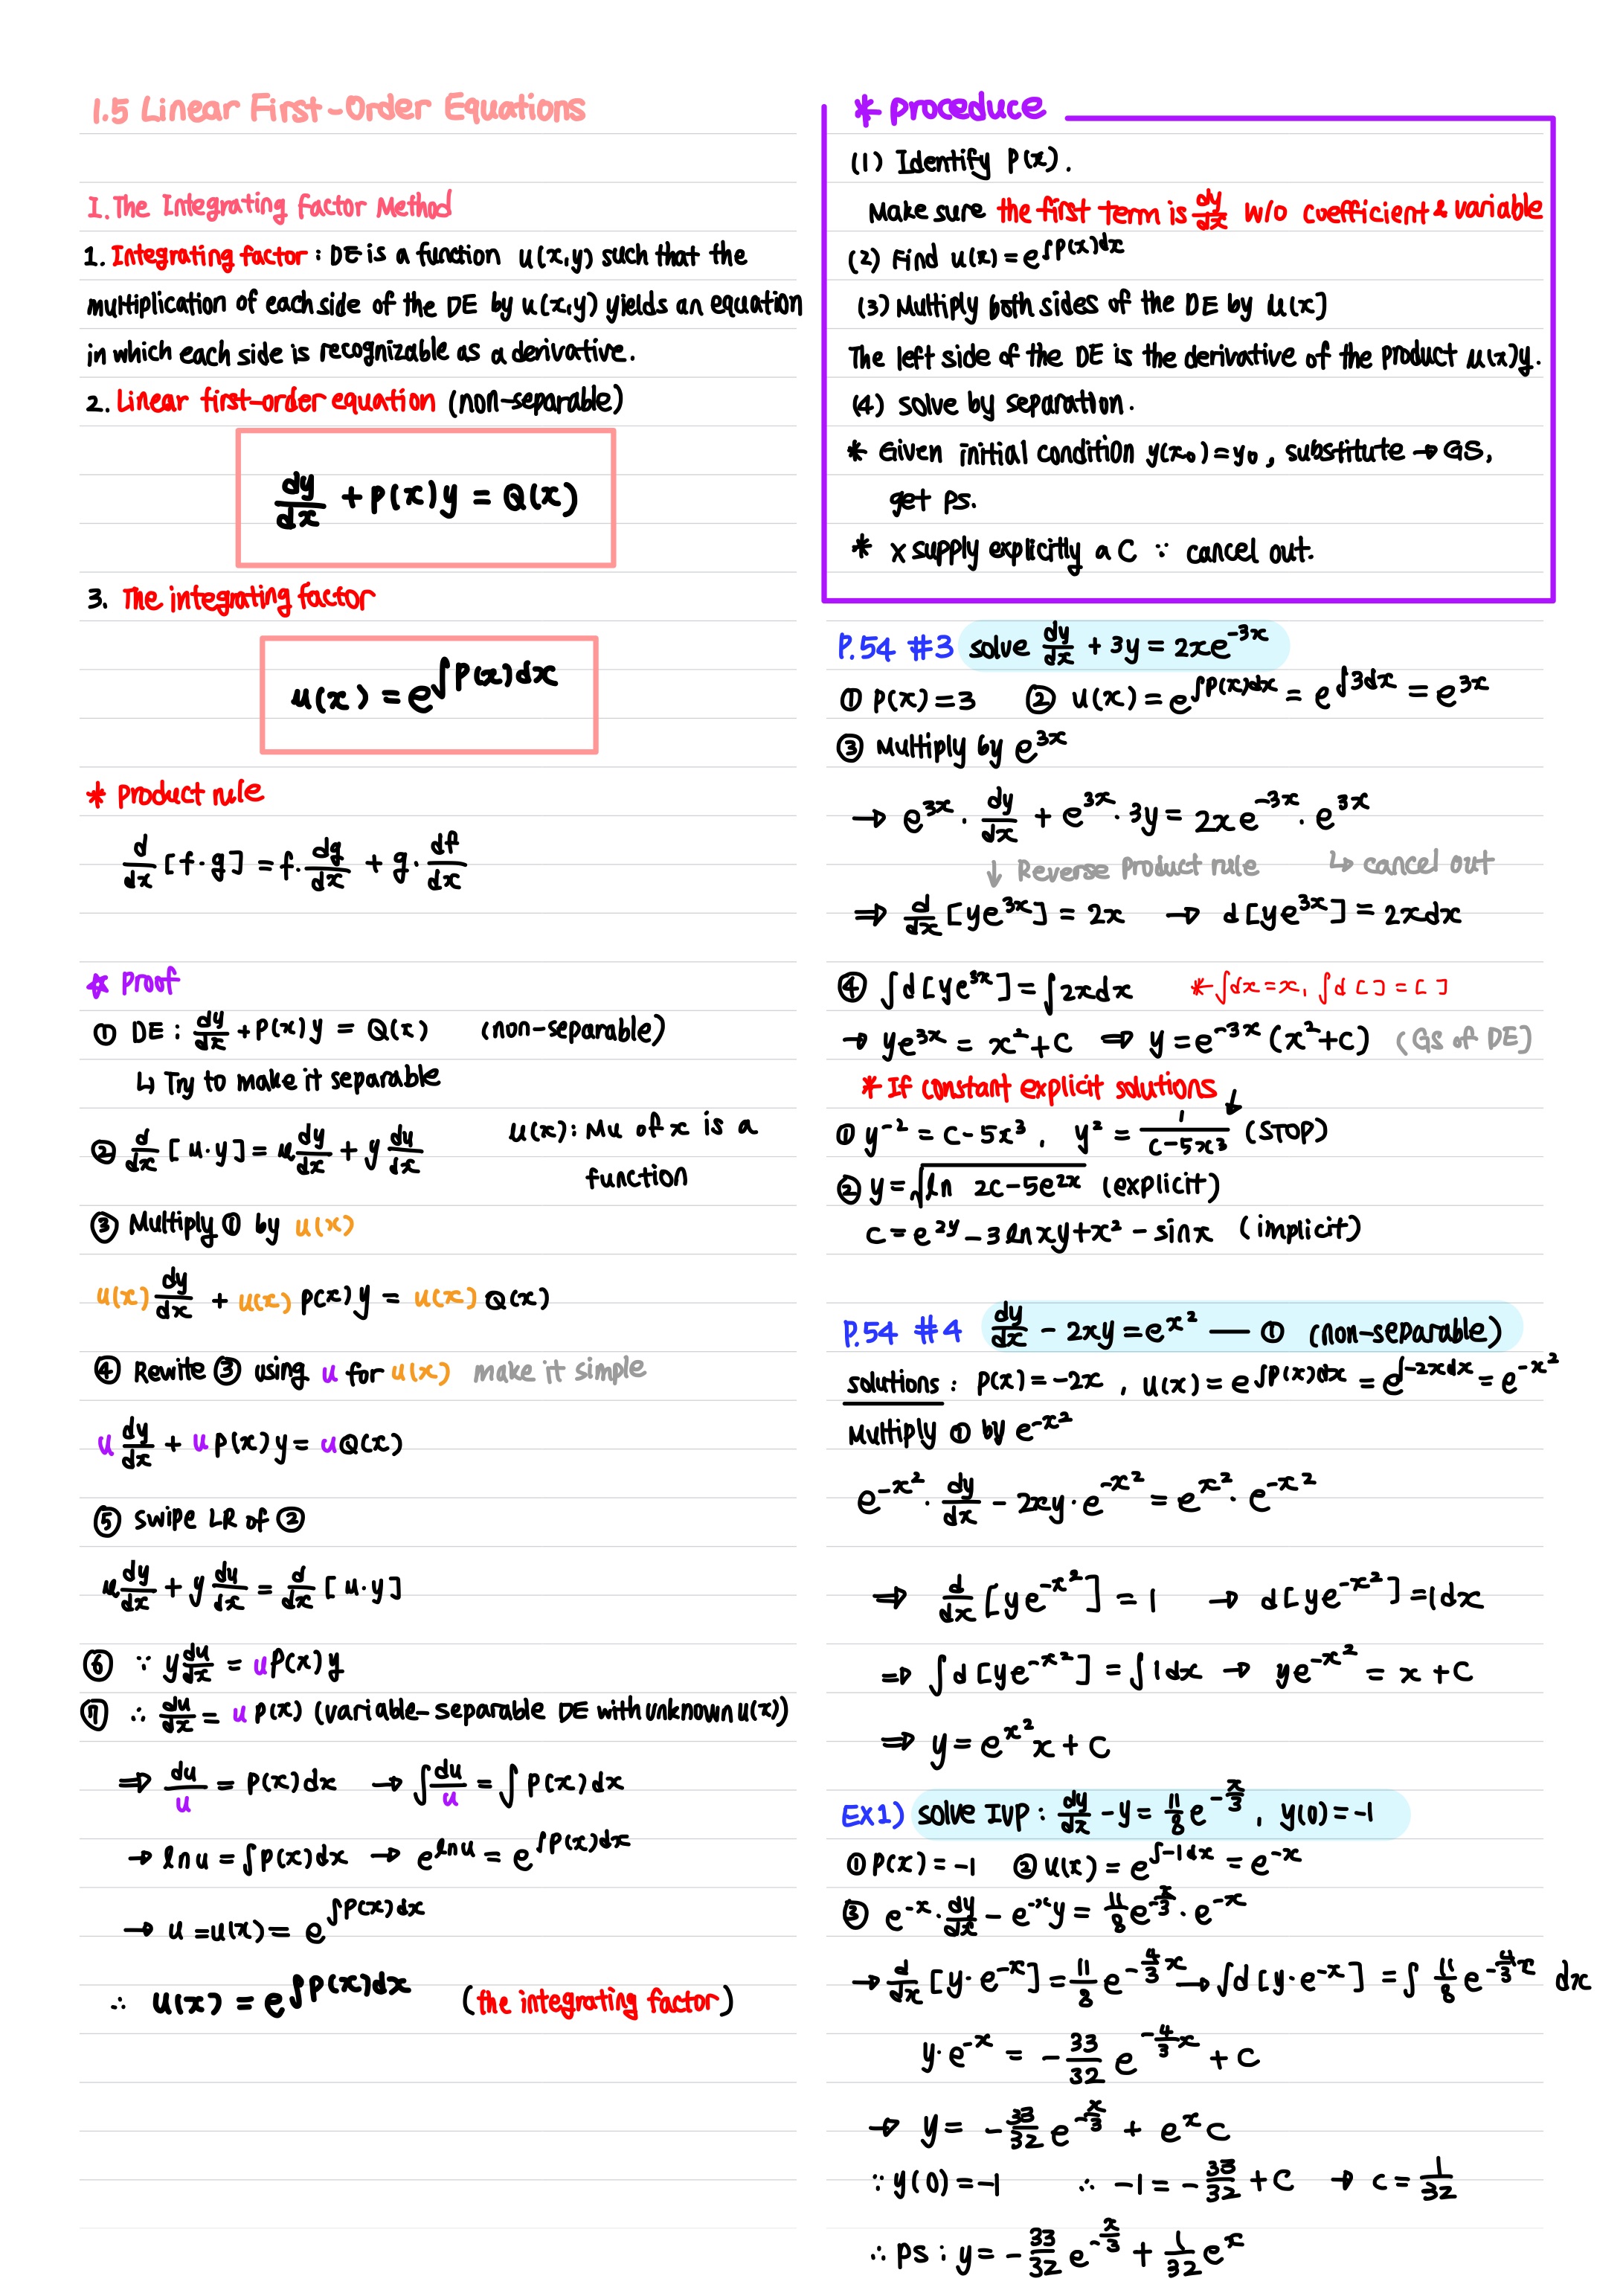 1.5 Linear First-Order Equations
I. The Integrating Factor Method
1. Integrating factor : DE is a function u(x,y) such that the
multiplication of each side of the DE by u(x,y) yields an equation
in which each side is recognizable as a derivative.
2. Linear first-order equation (non-separable)
dy/dx + P(x)y = Q(x)
3. The integrating factor
u(x) = e^∫P(x)dx
* Product rule
d/dx [f·g] = f·dg/dx + g·df/dx
☆ Proof
① DE : dy/dx + P(x)y = Q(x) (non-separable)
↳ Try to make it separable
② d/dx [u·y] = u dy/dx + y du/dx u(x) : Mu of x is a
function
③ Multiply ① by u(x)
u(x) dy/dx + u(x) P(x)y = u(x) Q(x)
④ Rewite ③ using u for u(x) make it simple
u dy/dx + u P(x)y = uQ(x)
⑤ Swipe LR of ②
u dy/dx + y du/dx = d/dx [u·y]
⑥ ∵ y du/dx = uP(x)y
⑦ ∴ du/dx = u P(x) (variable-separable DE with unknown u(x))
⇒ du/u = P(x)dx → ∫du/u = ∫P(x)dx
→ ln u = ∫P(x)dx → e^ln u = e^∫P(x)dx
→ u = u(x) = e^∫P(x)dx
∴ u(x) = e^∫P(x)dx (the integrating factor)
* Proceduce
(1) Identify P(x).
Make sure the first term is dy/dx w/o coefficient & variable
(2) Find u(x) = e^∫P(x)dx
(3) Multiply both sides of the DE by u(x]
The left side of the DE is the derivative of the product u(x)y.
(4) solve by separation.
* Given initial condition y(x₀)=y₀, substitute → GS,
get ps.
* x supply explicitly a C ∵ cancel out.
P.54 #3 solve dy/dx + 3y = 2xe^-3x
① P(x)=3 ② u(x) = e^∫P(x)dx = e^∫3dx = e^3x
③ Multiply by e^3x
→ e^3x · dy/dx + e^3x · 3y = 2xe^-3x · e^3x
↓ Reverse Product rule ↳ cancel out
⇒ d/dx [ye^3x] = 2x → d[ye^3x] = 2xdx
④ ∫d[ye^3x] = ∫2xdx * ∫dx = x, ∫d[ ] = [ ]
→ ye^3x = x²+C ⇒ y = e^-3x (x²+C) (GS of DE)
* If constant explicit solutions ↓
① y^-2 = C-5x³, y² = 1/(C-5x³) (STOP)
② y = √(ln 2C-5e^2x) (explicit)
C = e^2y - 3lnxy + x² - sinx (implicit)
P.54 #4 dy/dx - 2xy = e^x² — ① (non-separable)
solutions : P(x) = -2x , u(x) = e^∫P(x)dx = e^∫-2xdx = e^-x²
Multiply ① by e^-x²
e^-x² · dy/dx - 2xy · e^-x² = e^x² · e^-x²
⇒ d/dx [ye^-x²] = 1 → d[ye^-x²] = 1dx
⇒ ∫d[ye^-x²] = ∫1dx → ye^-x² = x + C
⇒ y = e^x² x + C
EX1) solve IVP : dy/dx - y = 11/8 e^-x/3, y(0) = -1
① P(x) = -1 ② u(x) = e^∫-1dx = e^-x
③ e^-x · dy/dx - e^-x y = 11/8 e^-x/3 · e^-x
→ d/dx [y·e^-x] = 11/8 e^-4/3x → ∫d[y·e^-x] = ∫ 11/8 e^-4/3x dx
y·e^-x = -33/32 e^-4/3x + C
→ y = -33/32 e^-x/3 + e^x C
∵ y(0) = -1 ∴ -1 = -33/32 + C → C = 1/32
∴ PS : y = -33/32 e^-x/3 + 1/32 e^x